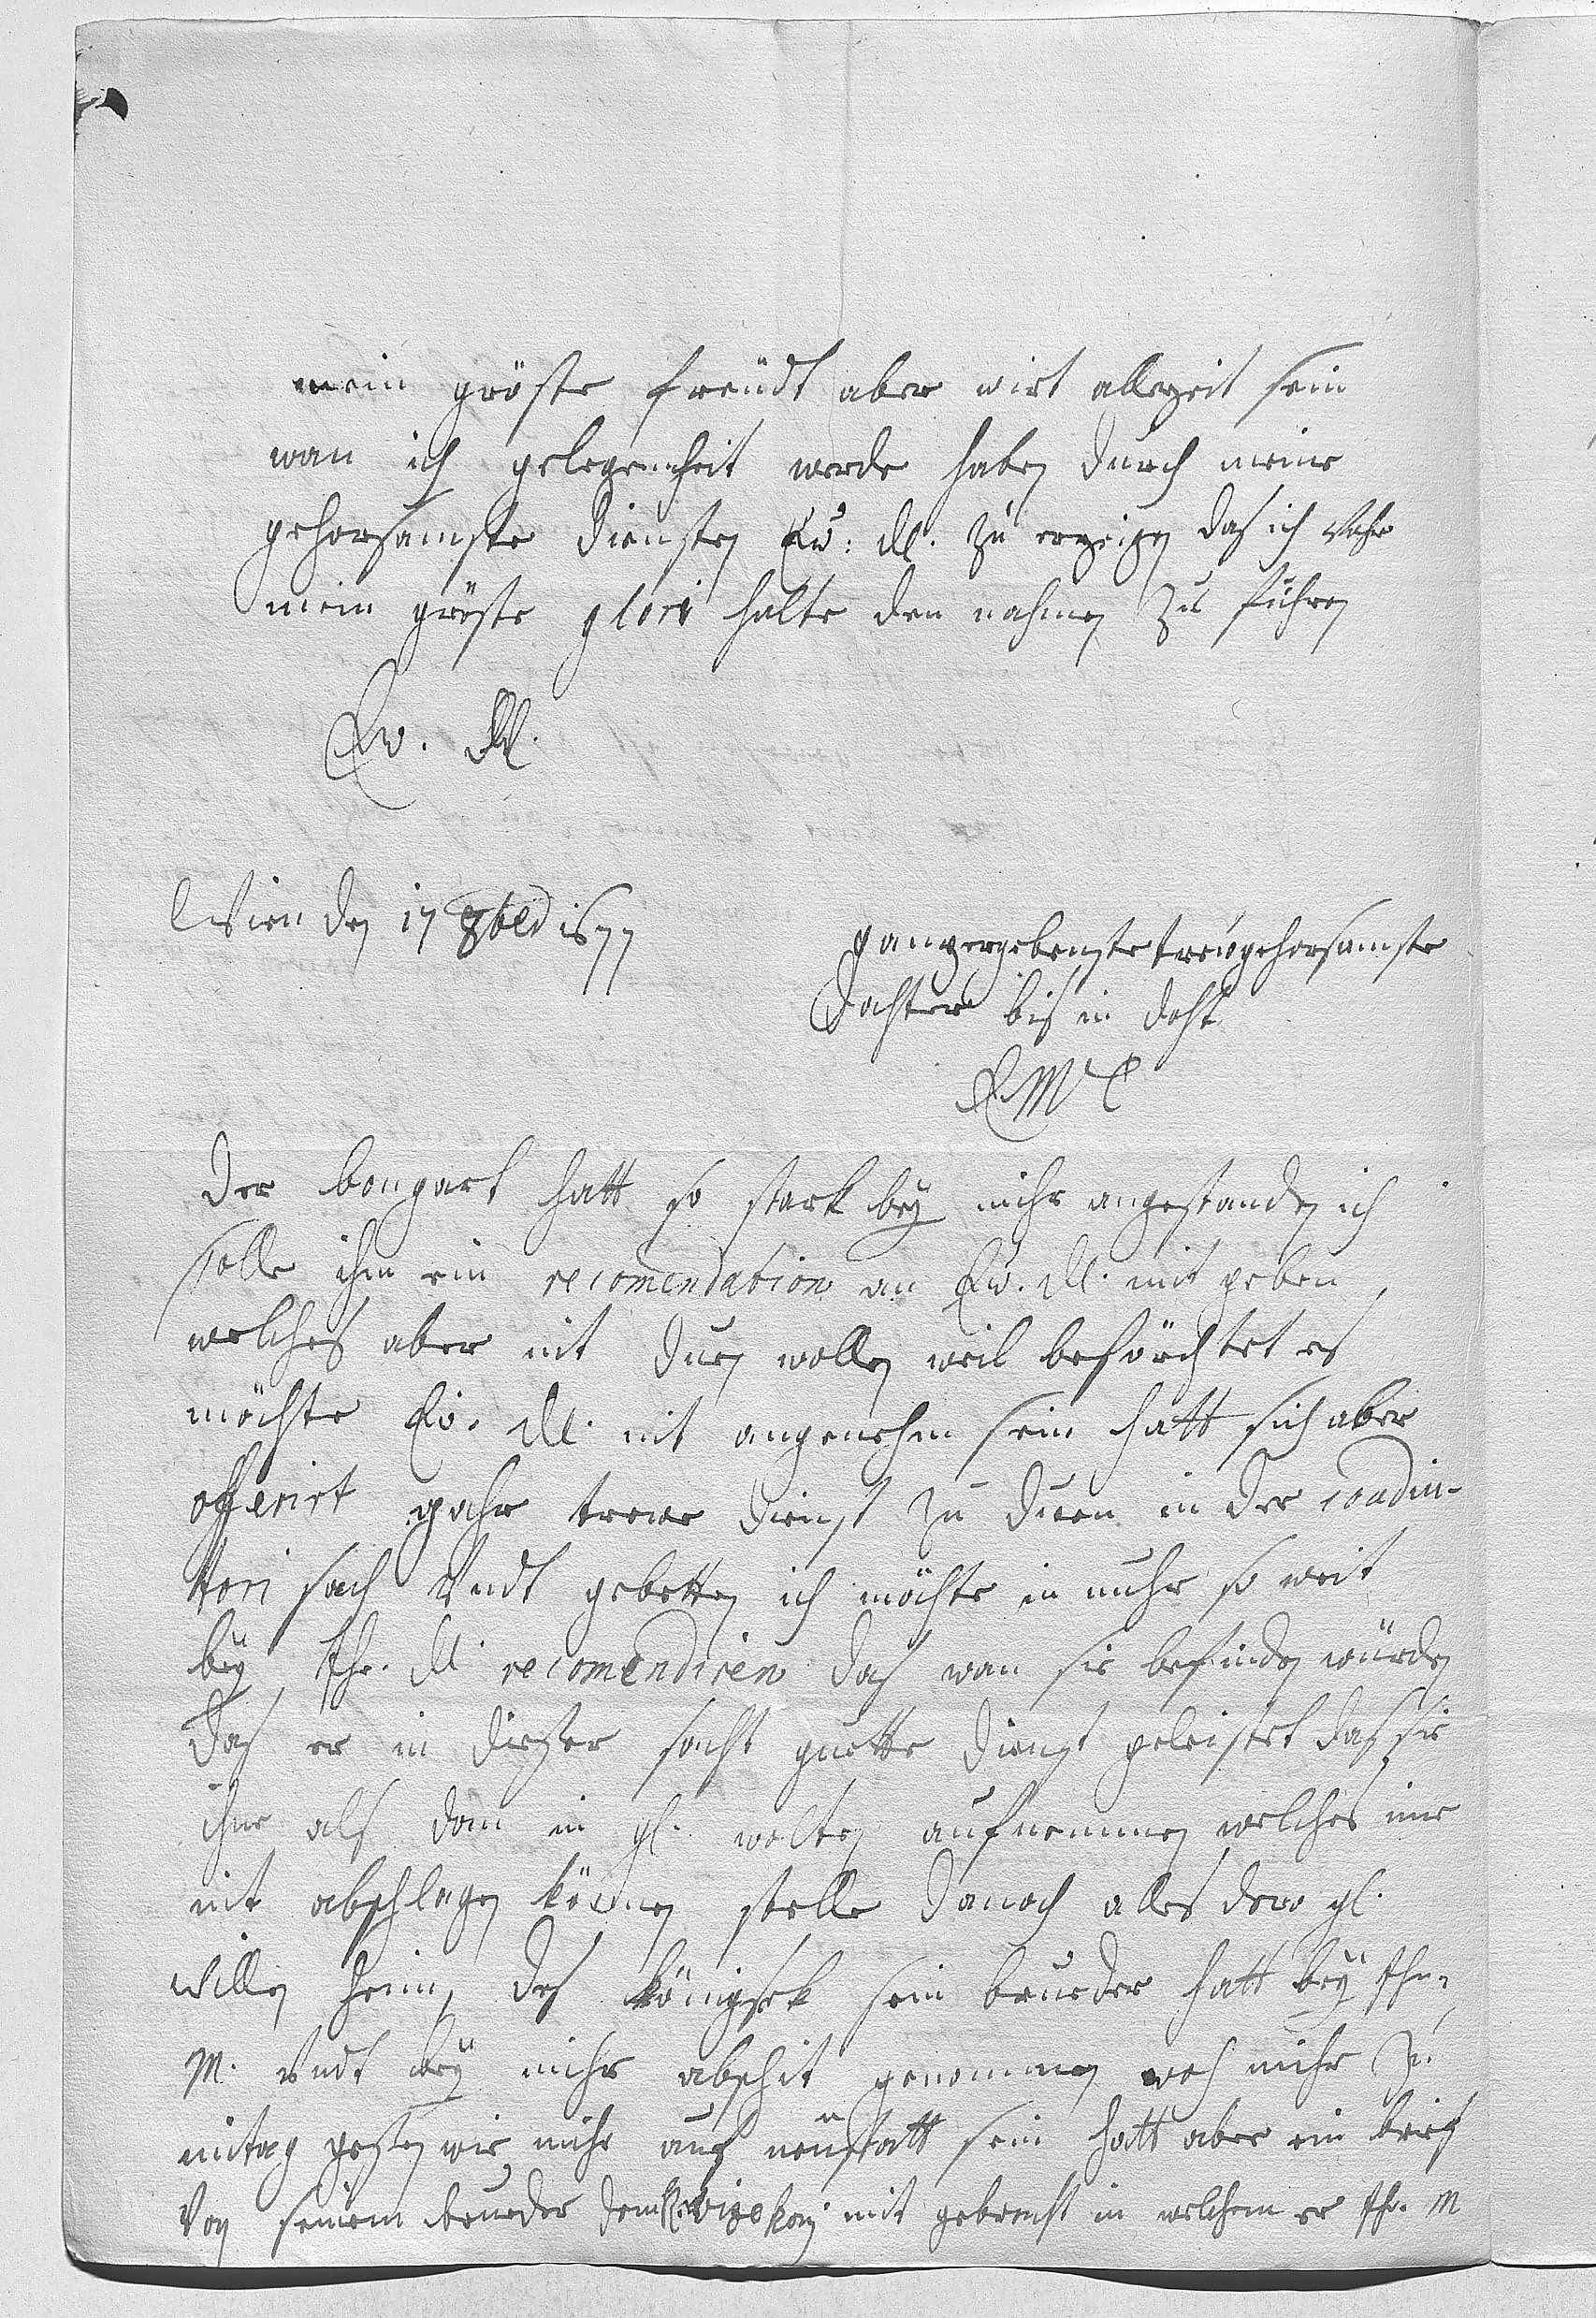 mein gröste freüdt aber wirt allezeit sein
wan ich gelegenheit werde haben durch meine
gehorsamste diensten Ew: Dl. zu erzeigen das ich vohr
mein gröste glori halte den nahmen zu führen
Ew. Dl.
Wien den 17 1677
ganz ergebenste treügehorsamste
dochter bis in doht
E M T
der bongart hatt so stark bey mihr angestanden ich
solle ihm ein recomendation an Ew. Dl. mit geben
welches aber nit duen wollen weil beförchtet es
möchte Ew. Dl. nit angenehm sein hatt sich aber
offerirt gahr treue dienst zu duen in der coadiu-
tori sach undt gebetten ich möchte in nuhr so weit
bey Ihr. Dl. recomendiren das wan sie befinden würden
das er in dießer sacht guette dienst geleistet das sie
ihne als dan in gl. wolten aufnemmen welches ime
nit abschlagen können stelle danoch alles dero gl.
willen heim, des königsek sein brueder hatt bey Ihr.
M. undt bey mihr abschit genommen noch mihr zu
mitag geßen wie mihr auf neüstatt sein hatt aber ein brief
von seinem brueder dem mit gebracht in welchem er Ihr. M